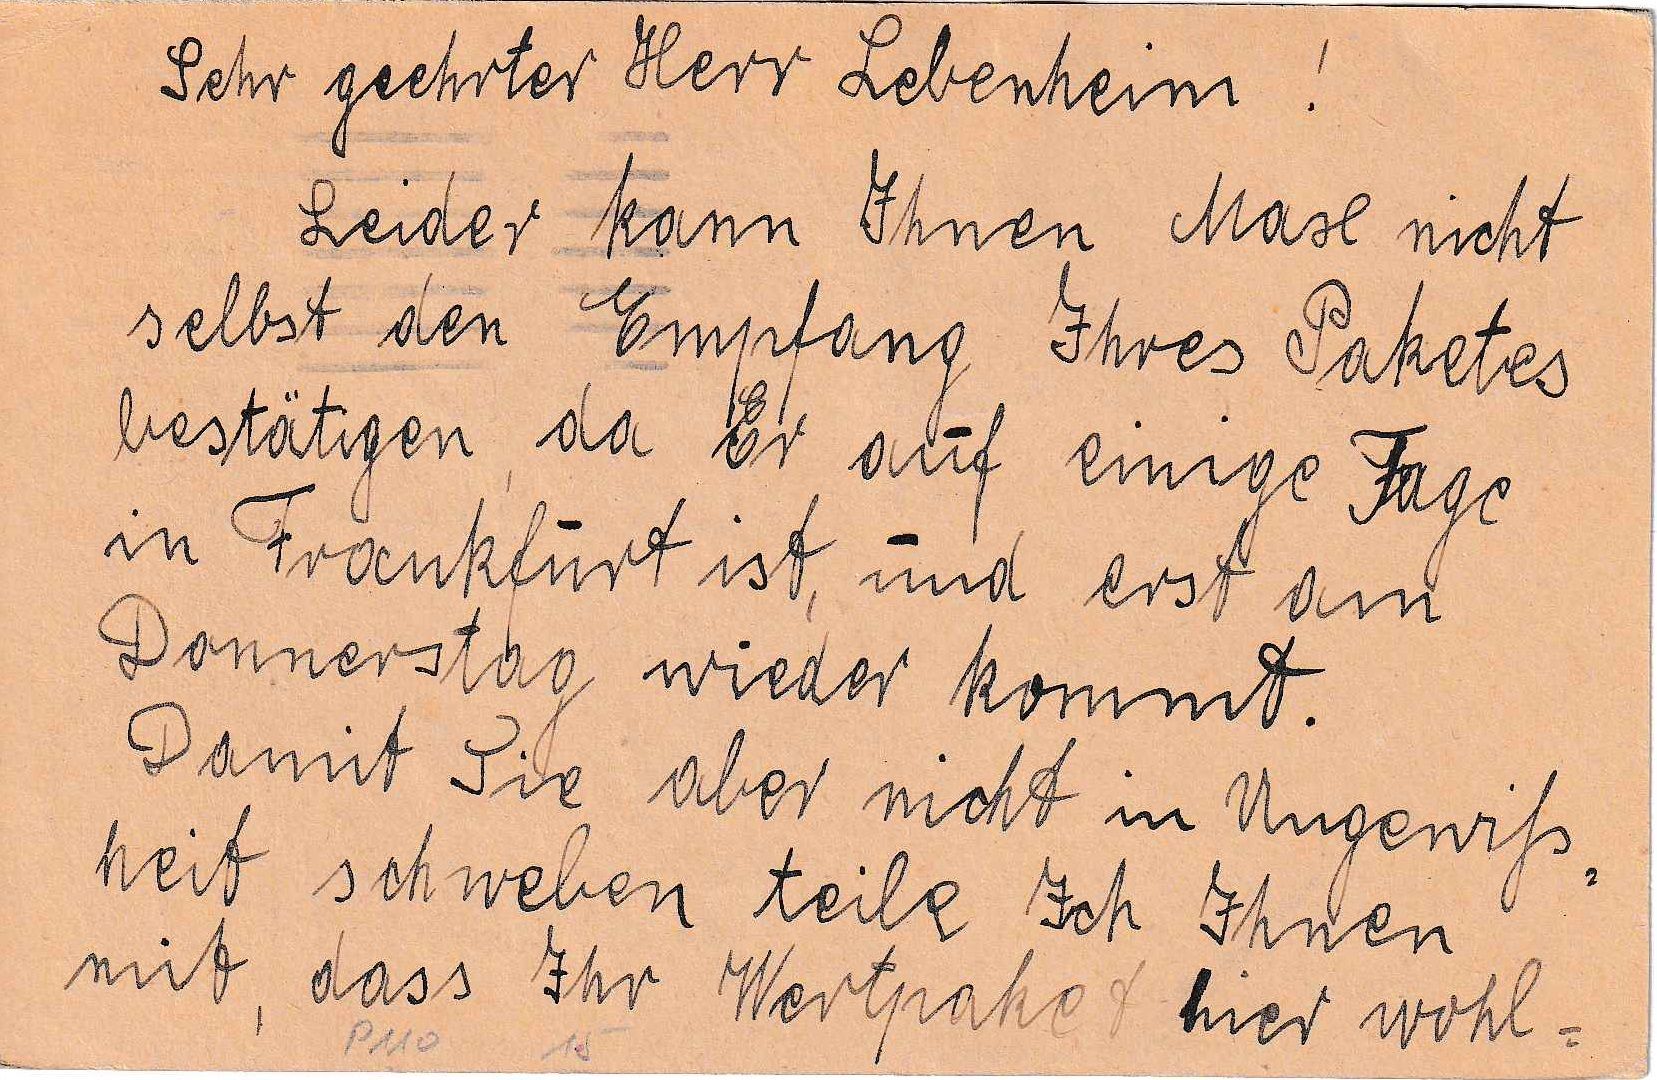 Sehr geehrter Herr Lebenheim !
Leider kann Ihnen Masl nicht
selbst den Empfang Ihres Paketes
bestätigen, da Er auf einige Tage
in Frankfurt ist, und erst am
Donnerstag wieder kommt.
Damit Sie aber nicht in Ungewiss,
heit schweben teile Ich Ihnen
mit, dass Ihr Wertpaket hier wohl=
P110 15